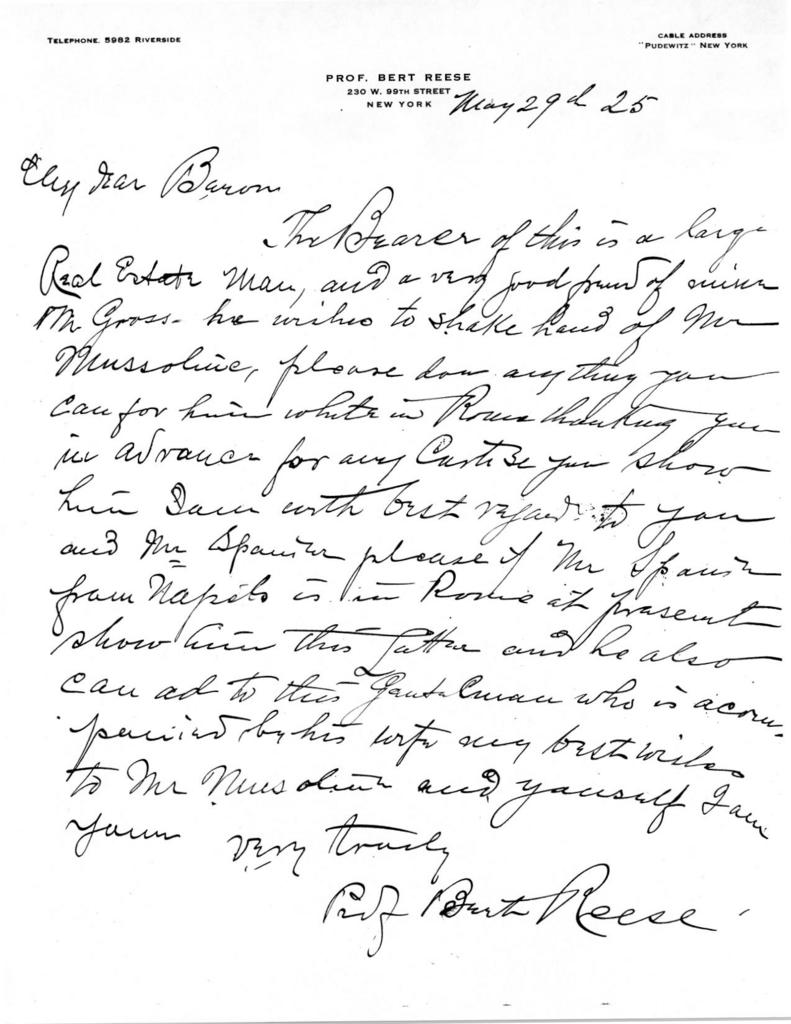 TELEPHONE. 5982 RIVERSIDE
CABLE ADDRESS
"PUDEWITZ" NEW YORK
PROF. BERT REESE
230 W. 99TH STREET
NEW YORK
May 29d 25
My dear Baron
The Bearer of this is a large
Real Estate Man, and a very good frend of mine
Mr Gross - he wishes to shake hand of Mr
Mussoline, please don anything you
can for him while in Rome thanking you
in advance for any Curtise you show
him I am with best regard to you
and Mr Spanier please if Mr Spanier
from Napels is in Rome at prasent
show him this Letter and he also
can ad to this Gentelman who is acom-
panied by his wife my best wishes
to Mr Musoline and yourself I am
yours very truely
Prof Bert Reese